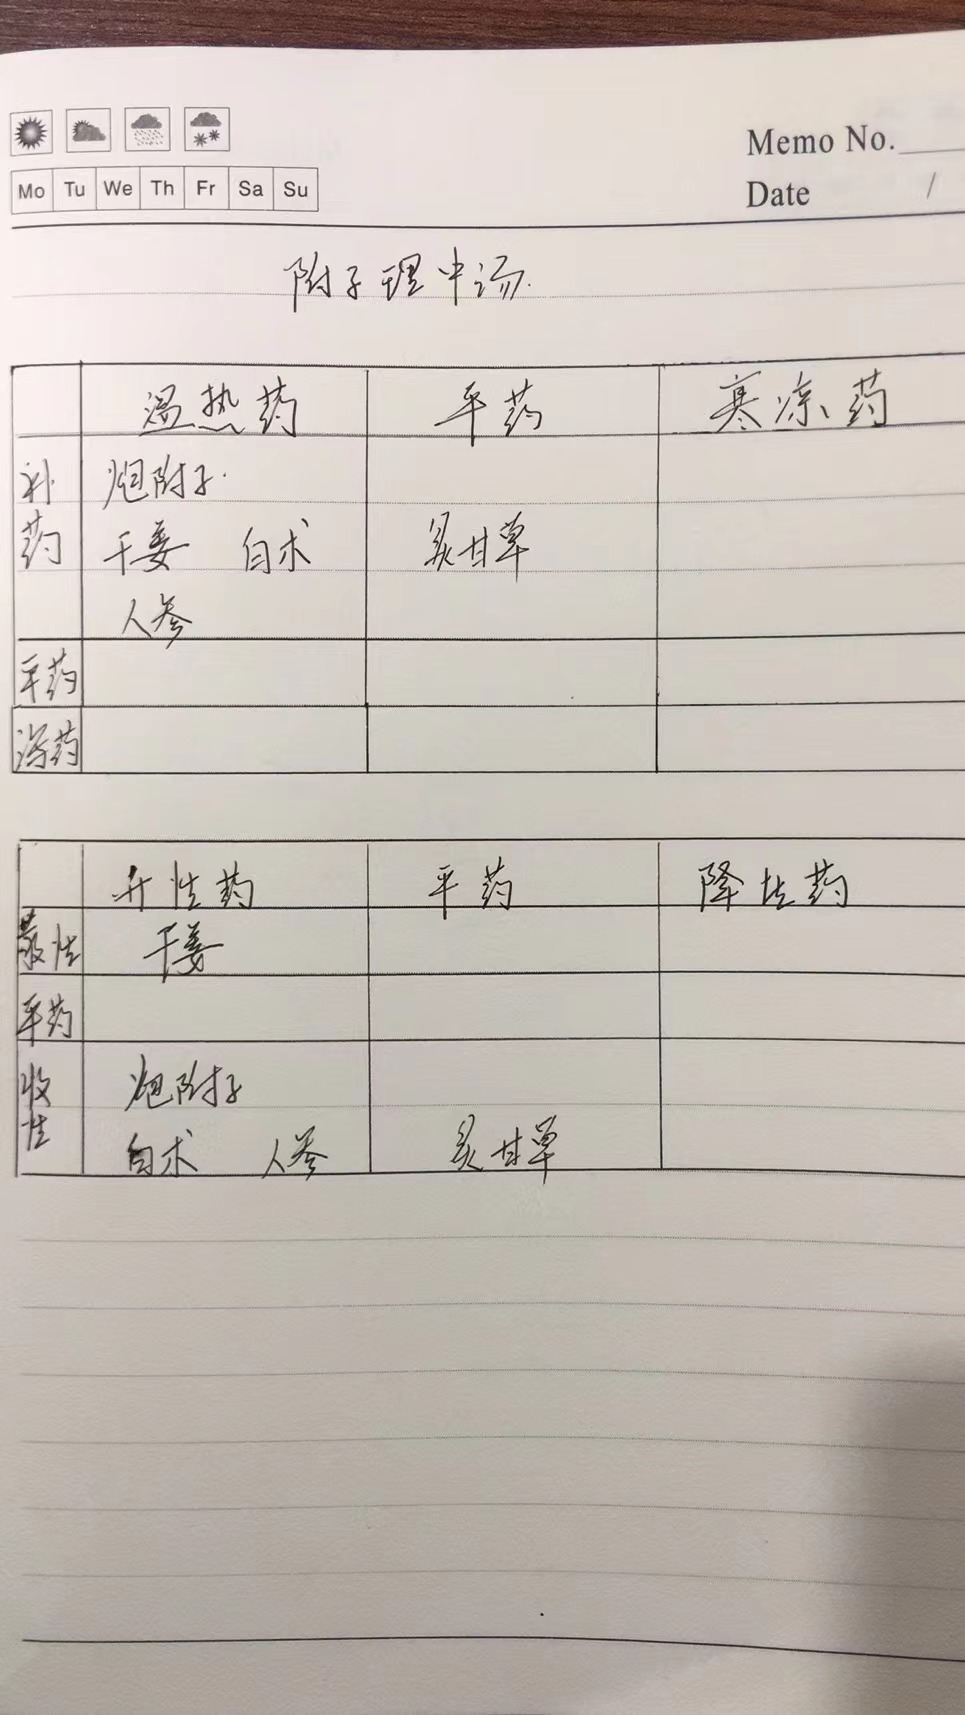 Mo Tu We Th Fr Sa Su
Memo No.
Date /
附子理中汤
温热药 平药 寒凉药
补药
炮附子
干姜 白术 炙甘草
人参
平药
泻药
升性药 平药 降性药
散性 干姜
平药
收性
炮附子
白术 人参 炙甘草